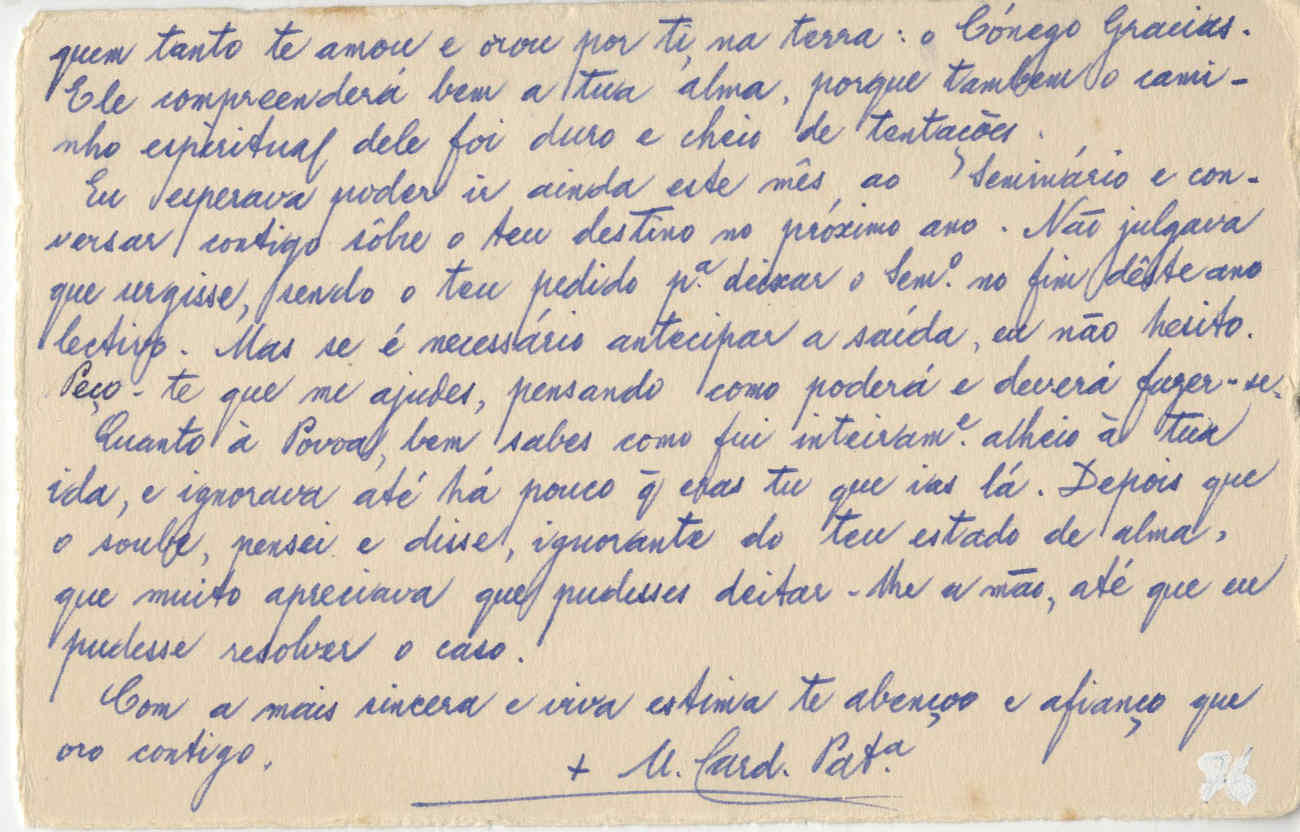 quem tanto te amou e orou por ti, na terra: o Cónego Gracias.
Ele compreenderá bem a tua alma, porque tambem o cami-
nho espiritual dele foi duro e cheio de tentações.
Eu esperava poder ir ainda este mês ao Seminário e con-
versar contigo sôbre o teu destino no próximo ano. Não julgava
que urgisse, sendo o teu pedido p.ª deixar o Sem.º no fim dêste ano
lectivo. Mas se é necessário antecipar a saída, eu não hesito.
Peço-te que me ajudes, pensando como poderá e deverá fazer-se.
Quanto à Povoa, bem sabes como fui inteiram.e alheio à tua
ida, e ignorava até há pouco q̄ eras tu que ias lá. Depois que
o soube, pensei e disse, ignorante do teu estado de alma,
que muito apreciava que pudesses deitar-lhe a mão, até que eu
pudesse resolver o caso.
Com a mais sincera e viva estima te abençoo e afianço que
oro contigo.
+ M. Card. Pat.a
96